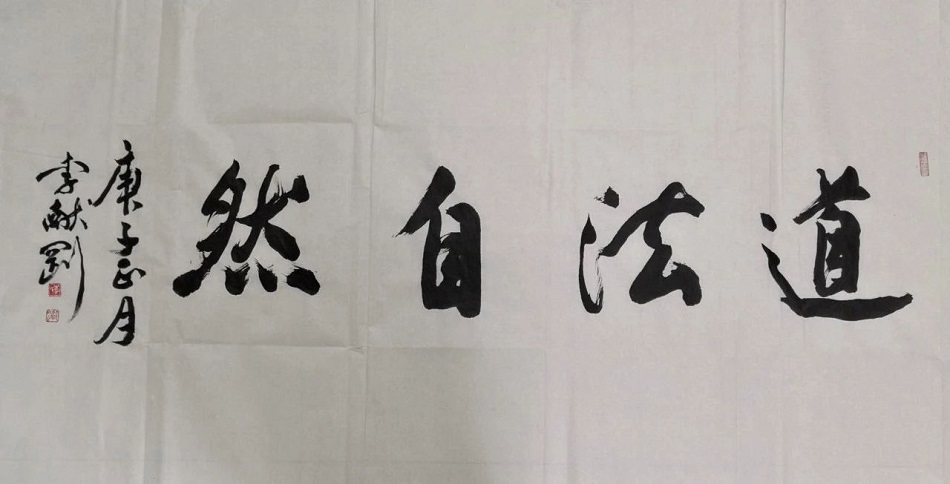 道法自然
庚子正月
李献刚